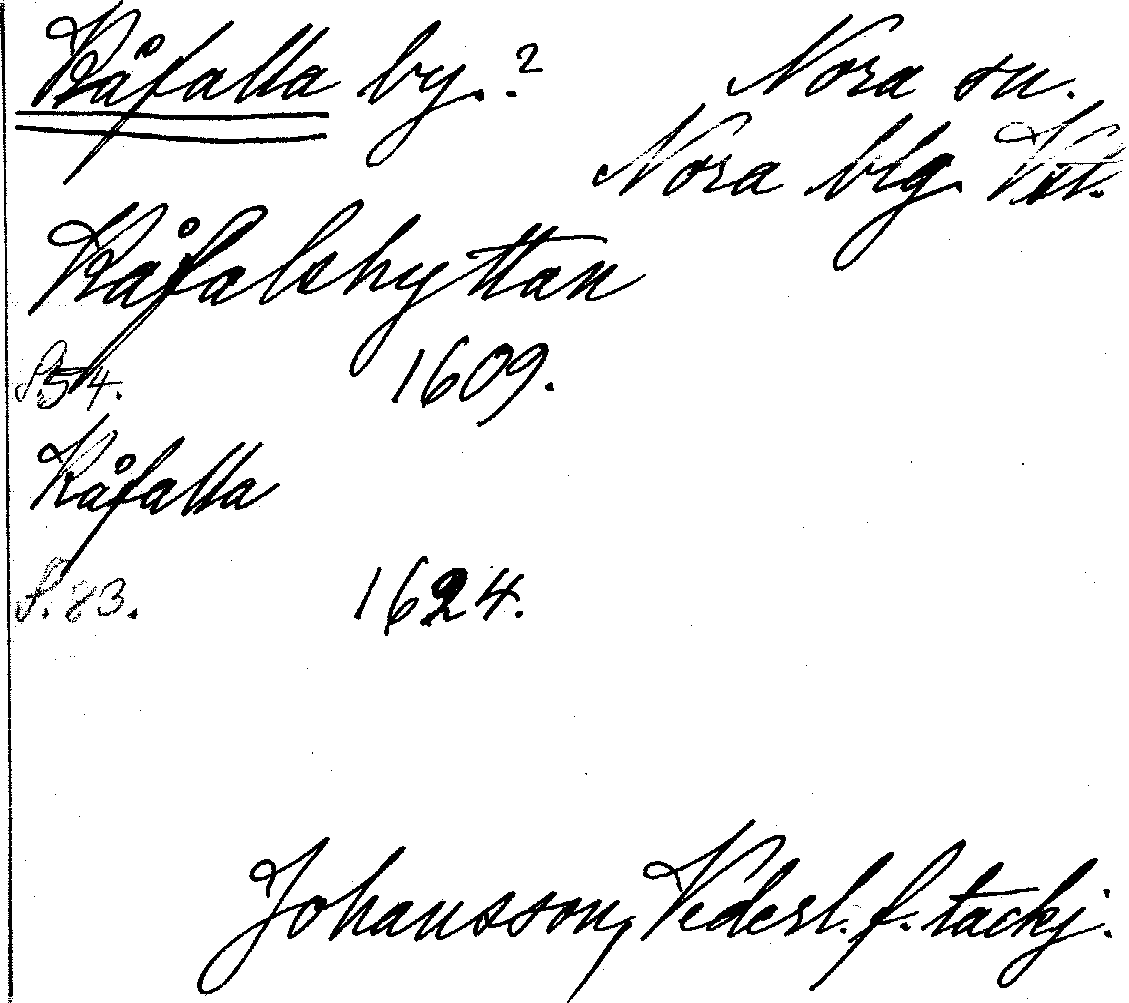 Kåfalla by.? Nora sn.
Nora blg. Vstl.
Kåfalshyttan
S. 54. 1609.
Kåfalla
S. 83. 1624.
Johansson, Vedersl. f. tackj.